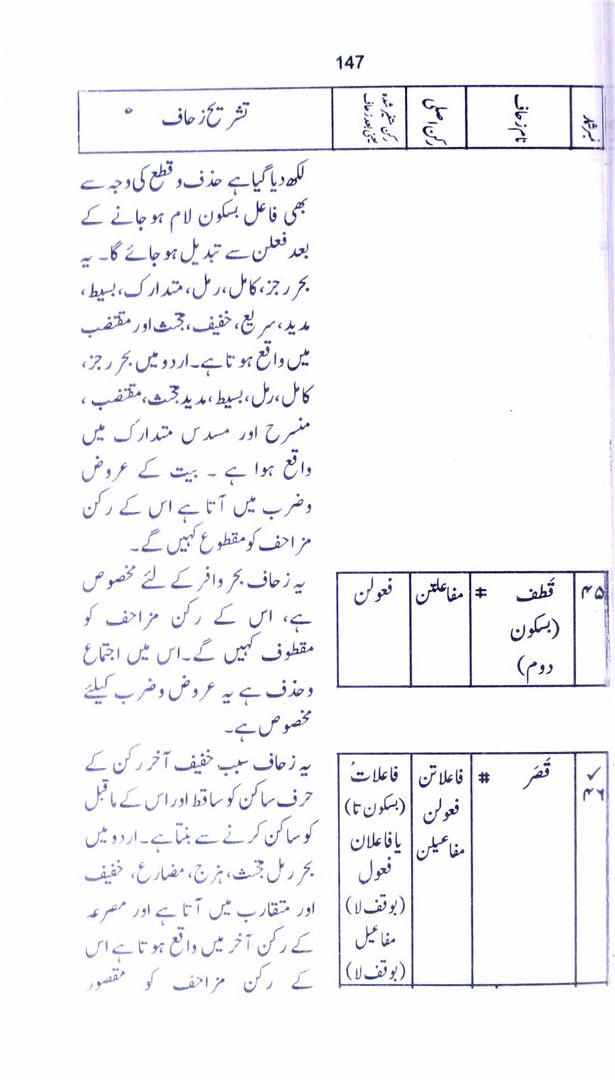 147
نمبر شمار
نام زحاف
رکن اصلی
رکن متغیر شدہ
یعنی بعد زحاف
تشریح زحاف
لکھ دیا گیا ہے حذف و قطع کی وجہ سے
بھی فاعل بسکون لام ہو جانے کے
بعد فعلن سے تبدیل ہو جائے گا۔ یہ
بحر رجز، کامل، رمل، متدارک، بسیط،
مدید، سریع، خفیف، مجتث اور مقتضب
میں واقع ہوتا ہے۔ اردو میں بحر رجز،
کامل، رمل، بسیط، مدید مجتث، مقتضب،
منسرح اور مسدس متدارک میں
واقع ہوا ہے ۔ بیت کے عروض
و ضرب میں آتا ہے اس کے رکن
مزاحف کو مقطوع کہیں گے۔
۴۵
قَطف #
(بسکون
دوم)
مفاعلتن
فعولن
یہ زحاف بحر وافر کے لئے مخصوص
ہے، اس کے رکن مزاحف کو
مقطوف کہیں گے۔ اس میں اجتماع
و حذف ہے یہ عروض و ضرب کیلئے
مخصوص ہے۔
۴۶
قَصَر #
فاعلاتن
فعولن
مفاعیلن
فاعلاتُ
(بسکون تا)
یا فاعلان
فعول
(بوقف لا)
مفاعیل
(بوقف لا)
یہ زحاف سبب خفیف آخر رکن کے
حرف ساکن کو ساقط اور اس کے ماقبل
کو ساکن کرنے سے بنتا ہے۔ اردو میں
بحر رمل مجتث، ہزج، مضارع، خفیف
اور متقارب میں آتا ہے اور مصرعہ
کے رکن آخر میں واقع ہوتا ہے اس
کے رکن مزاحف کو مقصور